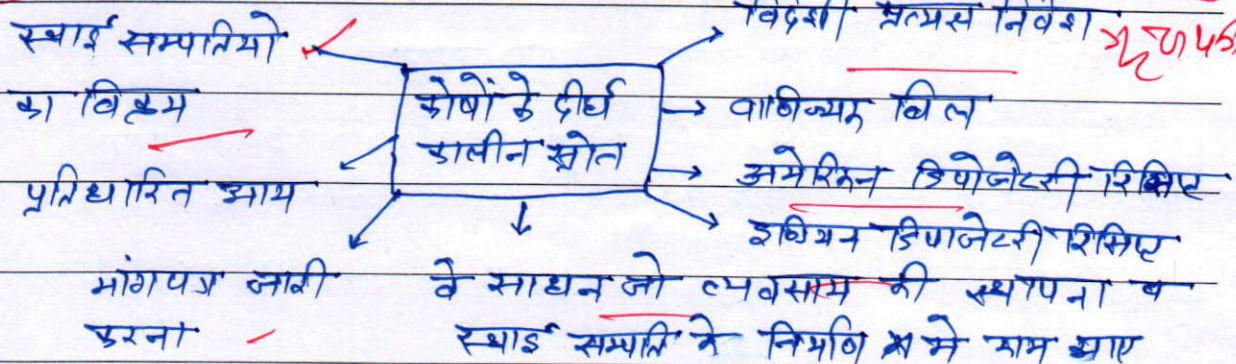 स्थाई सम्पतियो
का विक्रय
प्रतिधारित आय
मांगपत्र जारी
करना
कोषों के दीर्घ
कालीन स्रोत
विदेशी प्रत्यक्ष निवेश
वाणिज्यिक बिल
अमेरिकन डिपोजेटरी रिसिप्ट
इण्डियन डिपाजेटरी रिसिप्ट
वे साधन जो व्यवसाय की स्थापना व
स्थाई सम्पति के निर्माण मे काम आए